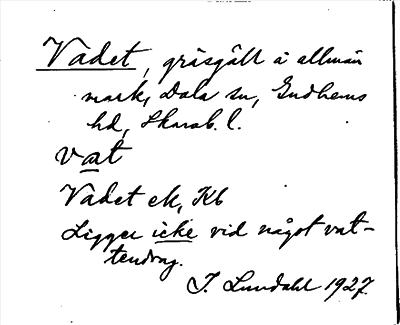 Vadet, gräsgäll å allmän
mark, Dala sn, Gudhems
hd, Skarab. l.
vat
Vadet ek, Kb
Ligger icke vid något vat-
tendrag.
I. Lundahl 1927.